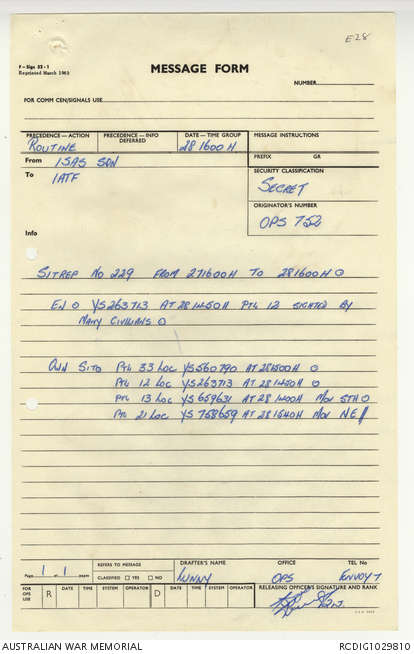 E28
F-Sigs 52-1
Reprinted March 1965
MESSAGE FORM
NUMBER
FOR COMM CEN/SIGNALS USE
PRECEDENCE—ACTION
ROUTINE
PRECEDENCE—INFO
DEFERRED
DATE—TIME GROUP
281600H
MESSAGE INSTRUCTIONS
From 1SAS SQN
PREFIX GR
To 1ATF
SECURITY CLASSIFICATION
SECRET
ORIGINATOR'S NUMBER
OPS 752
Info
SITREP No 229 FROM 271600H TO 281600H O
EN O YS263713 AT 281450H PTL 12 SIGHTED BY
MANY CIVILIANS O
OWN SITO PTL 33 LOC YS560790 AT 281500H O
PTL 12 LOC YS263713 AT 281450H O
PTL 13 LOC YS659631 AT 281400H MOV STH O
PTL 21 LOC YS758659 AT 281540H MOV NE //
Page 1 of 1
REFERS TO MESSAGE
CLASSIFIED YES NO
DRAFTER'S NAME
LUNNY
OFFICE
OPS
TEL No
ENVOY 7
FOR OPS USE
R DATE TIME SYSTEM OPERATOR D DATE TIME SYSTEM OPERATOR
RELEASING OFFICER'S SIGNATURE AND RANK
AUSTRALIAN WAR MEMORIAL
RCDIG1029810